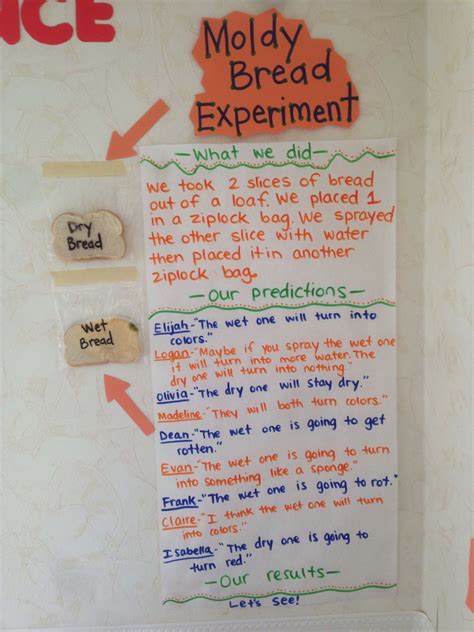 NCE
Moldy
Bread
Experiment
—What we did—
We took 2 slices of bread
out of a loaf. We placed 1
in a ziplock bag. We sprayed
the other slice with water
then placed it in another
ziplock bag.
—Our predictions—
Elijah-"The wet one will turn into
colors."
Logan-"Maybe if you spray the wet one
it will turn into more water. The
dry one will turn into nothing."
Olivia-"The dry one will stay dry."
Madeline-"They will both turn colors."
Dean-"The wet one is going to get
rotten."
Evan-"The wet one is going to turn
into something like a sponge."
Frank-"The wet one is going to rot."
Claire-"I think the wet one will turn
into colors."
Isabella-"The dry one is going to
turn red."
—Our results—
Let's see!
Dry
Bread
Wet
Bread